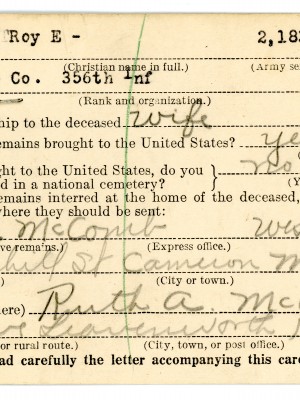 Roy E - 2,183
(Christian name in full.) (Army ser
Co. 356th Inf
(Rank and organization.)
hip to the deceased wife
emains brought to the United States? Ye
ght to the United States, do you No
d in a national cemetery? (Y
emains interred at the home of the deceased,
where they should be sent:
McComb Wes
ve remains.) (Express office.)
hill St Cameron M
(City or town.)
ere) Ruth A. Mc
Leavenworth
or rural route.) (City, town, or post office.)
ad carefully the letter accompanying this card